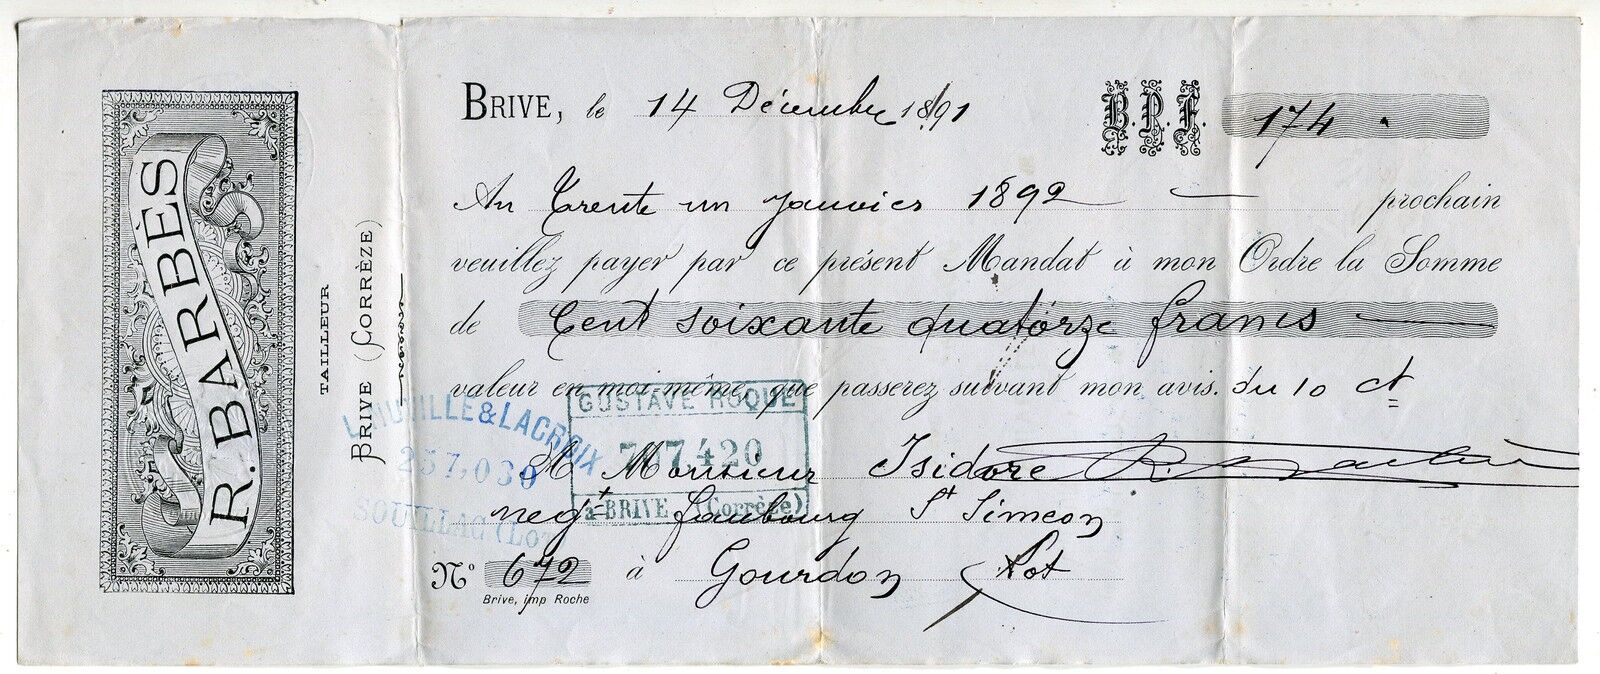 R. BARBÈS
TAILLEUR
BRIVE (CORRÈZE)
BRIVE, le 14 Décembre 1891
B.P.F. 174
Au Trente un Janvier 1892 prochain
veuillez payer par ce présent Mandat à mon Ordre la Somme
de Cent soixante quatorze francs
valeur en moi-même, que passerez suivant mon avis. du 10 ct
GUSTAVE ROQUE
767420
à BRIVE (Corrèze)
& LACROIX
257,030
SOUILLAC (LOT
M Monsieur Isidore
negt faubourg St Simeon
No 672 à Gourdon Lot
Brive, imp Roche